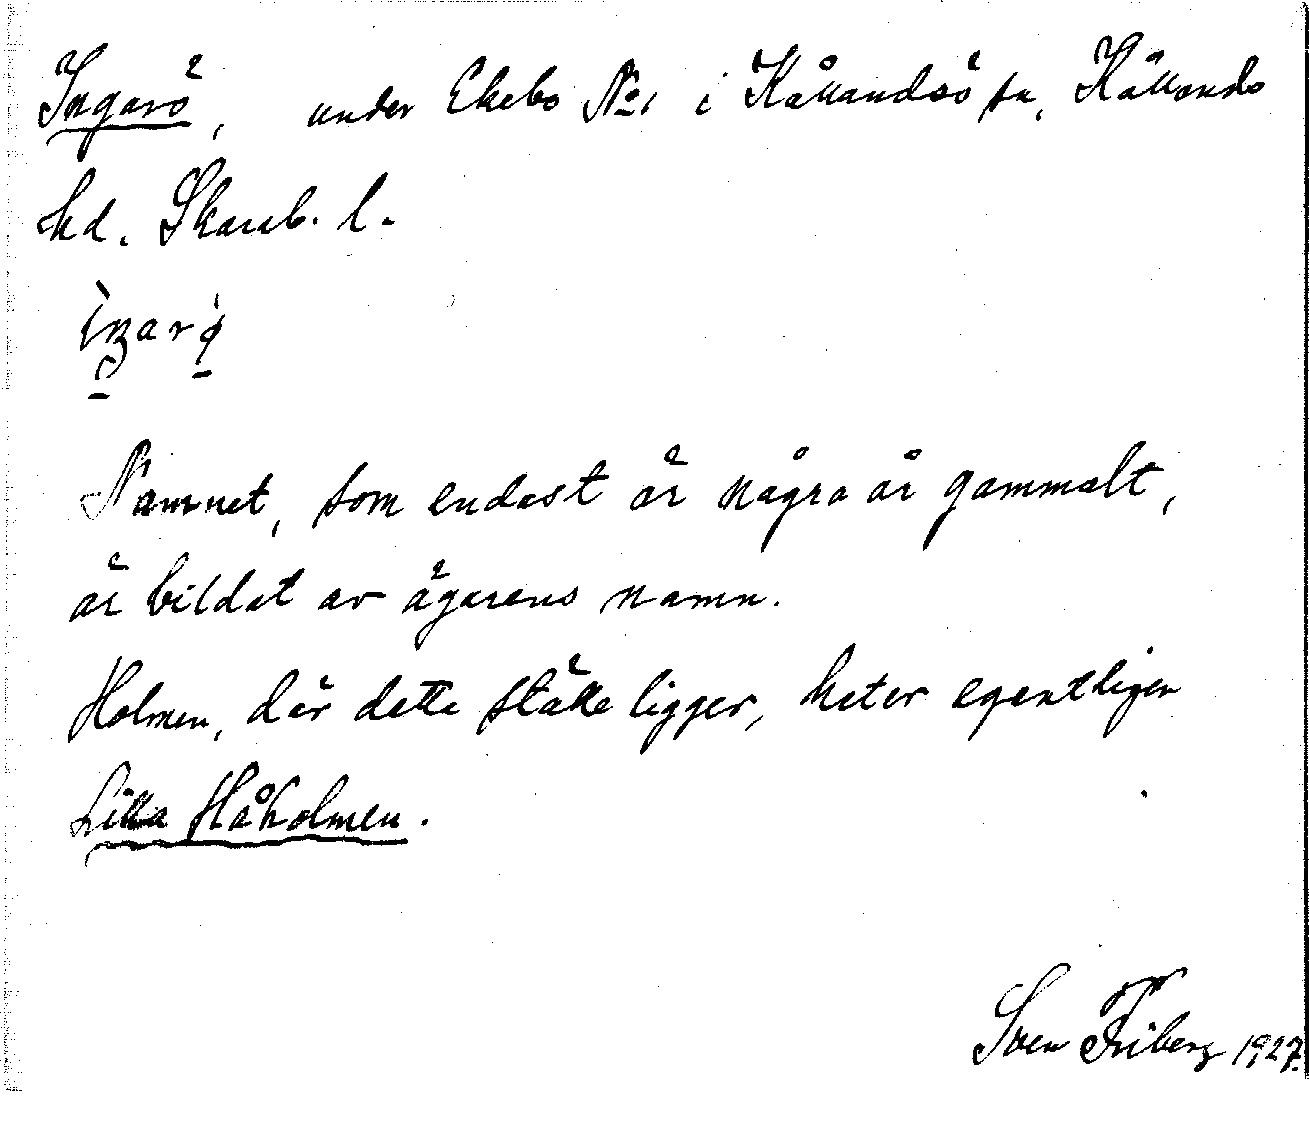 Ingarö, under Ekebo No 1 i Kållandsö sn, Kållands
hd. Skarab. l.
Namnet, som endast är några år gammalt,
är bildat av ägarens namn.
Holmen, där detta ställe ligger, heter egentligen
Lilla Håholmen.
Sven Friberg 1927.